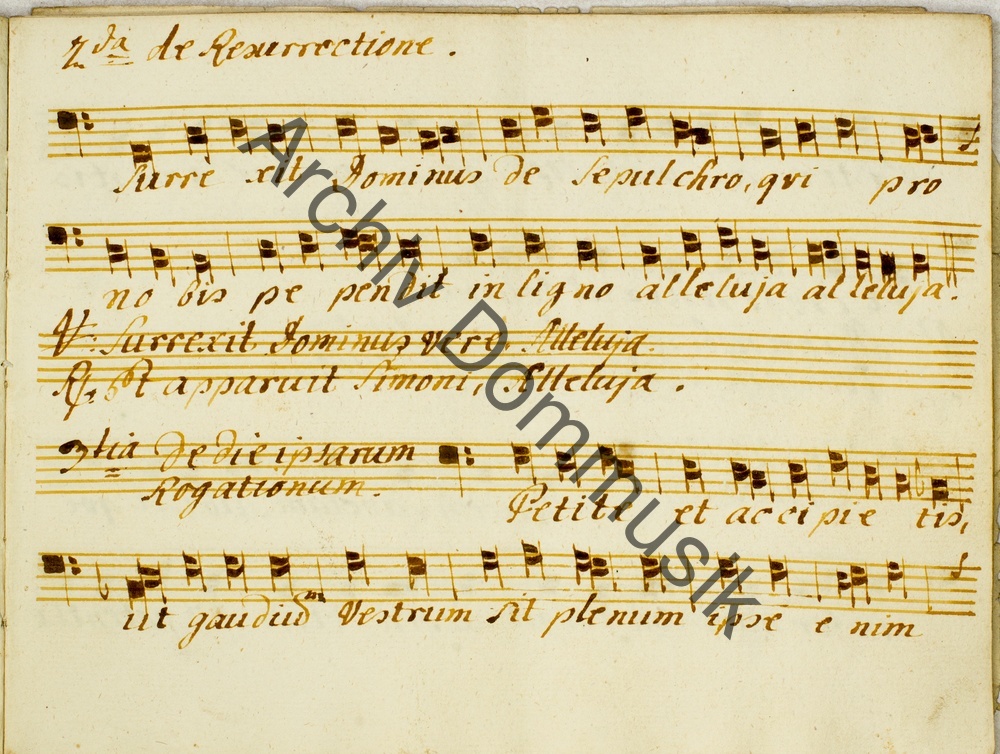 2da de Resurrectione.
Surre xit Dominus de Sepulchro, qvi pro
no bis pe pendit in ligno alleluja alleluja.
V: Surrexit Dominus vere, Alleluja.
Et apparuit Simoni, Alleluja.
3tia De die ipsarum
Rogationum.
Petite et accipie tis,
ut gaudium vestrum sit plenum ipse e nim
Archiv Dommusik